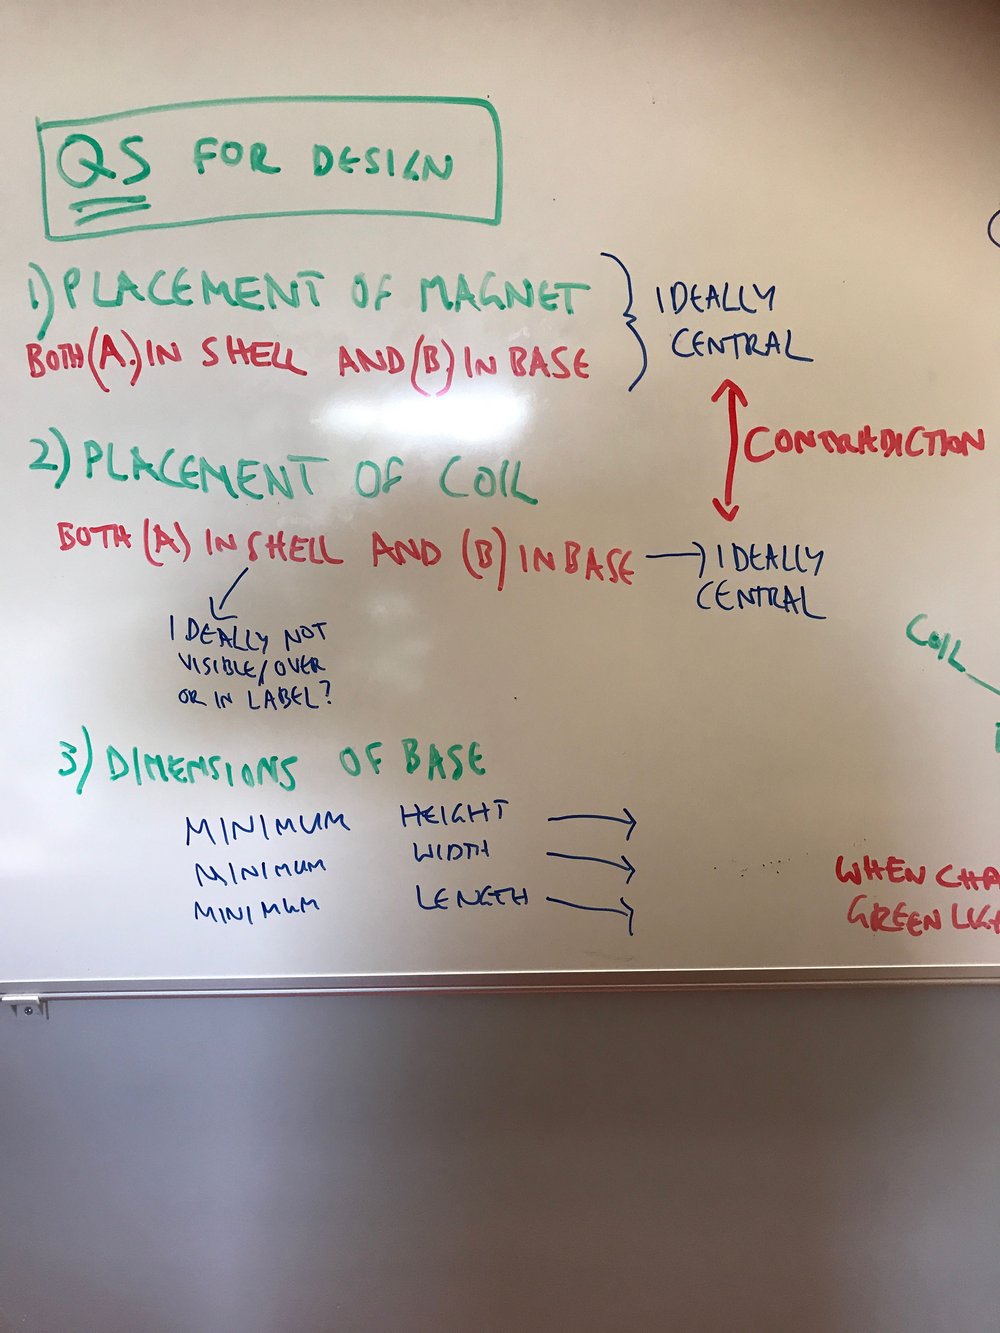 QS FOR DESIGN
1) PLACEMENT OF MAGNET
BOTH (A.) IN SHELL AND (B) IN BASE
IDEALLY
CENTRAL
CONTRADICTION
2) PLACEMENT OF COIL
BOTH (A) IN SHELL AND (B) IN BASE
IDEALLY
CENTRAL
IDEALLY NOT
VISIBLE/OVER
OR IN LABEL?
COIL
3) DIMENSIONS OF BASE
MINIMUM HEIGHT
MINIMUM WIDTH
MINIMUM LENGTH
WHEN CHA
GREEN LIG